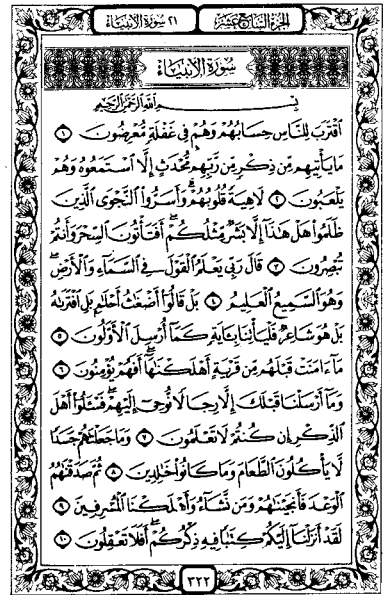 الجزء السابع عشر
٢١ سورة الأنبياء
سورة الأنبياء
بسم الله الرحمن الرحيم
اقْتَرَبَ لِلنَّاسِ حِسَابُهُمْ وَهُمْ فِي غَفْلَةٍ مُّعْرِضُونَ ١
مَا يَأْتِيهِم مِّن ذِكْرٍ مِّن رَّبِّهِم مُّحْدَثٍ إِلَّا اسْتَمَعُوهُ وَهُمْ
يَلْعَبُونَ ٢ لَاهِيَةً قُلُوبُهُمْ ۗ وَأَسَرُّوا النَّجْوَى الَّذِينَ
ظَلَمُوا هَلْ هَٰذَا إِلَّا بَشَرٌ مِّثْلُكُمْ ۖ أَفَتَأْتُونَ السِّحْرَ وَأَنتُمْ
تُبْصِرُونَ ٣ قَالَ رَبِّي يَعْلَمُ الْقَوْلَ فِي السَّمَاءِ وَالْأَرْضِ ۖ
وَهُوَ السَّمِيعُ الْعَلِيمُ ٤ بَلْ قَالُوا أَضْغَاثُ أَحْلَامٍ بَلِ افْتَرَاهُ
بَلْ هُوَ شَاعِرٌ فَلْيَأْتِنَا بِآيَةٍ كَمَا أُرْسِلَ الْأَوَّلُونَ ٥
مَا آمَنَتْ قَبْلَهُم مِّن قَرْيَةٍ أَهْلَكْنَاهَا ۖ أَفَهُمْ يُؤْمِنُونَ ٦
وَمَا أَرْسَلْنَا قَبْلَكَ إِلَّا رِجَالًا نُّوحِي إِلَيْهِمْ ۖ فَسْـَٔلُوا أَهْلَ
الذِّكْرِ إِن كُنتُمْ لَا تَعْلَمُونَ ٧ وَمَا جَعَلْنَاهُمْ جَسَدًا
لَّا يَأْكُلُونَ الطَّعَامَ وَمَا كَانُوا خَالِدِينَ ٨ ثُمَّ صَدَقْنَاهُمُ
الْوَعْدَ فَأَنجَيْنَاهُمْ وَمَن نَّشَاءُ وَأَهْلَكْنَا الْمُسْرِفِينَ ٩
لَقَدْ أَنزَلْنَا إِلَيْكُمْ كِتَابًا فِيهِ ذِكْرُكُمْ ۖ أَفَلَا تَعْقِلُونَ ١٠
٣٢٢